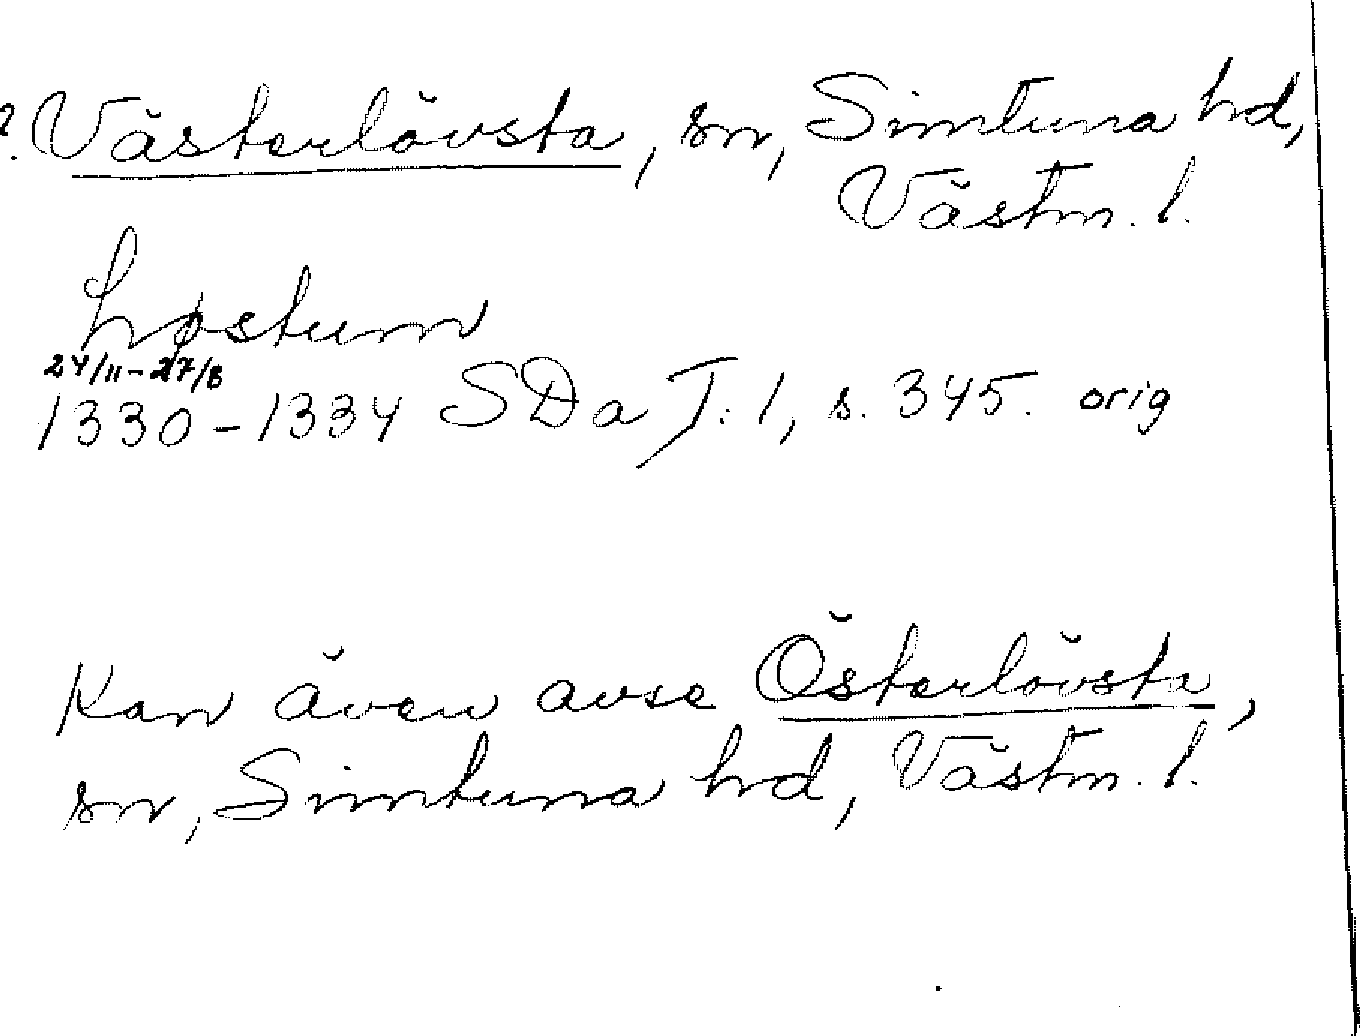 ?. Västerlövsta, sn, Simtuna hd,
Västm. l.
Løstum
24/11-27/8
1330-1334 SDa T. 1, s. 345. orig
Kan även avse Österlövsta,
sn, Simtuna hd, Västm. l.